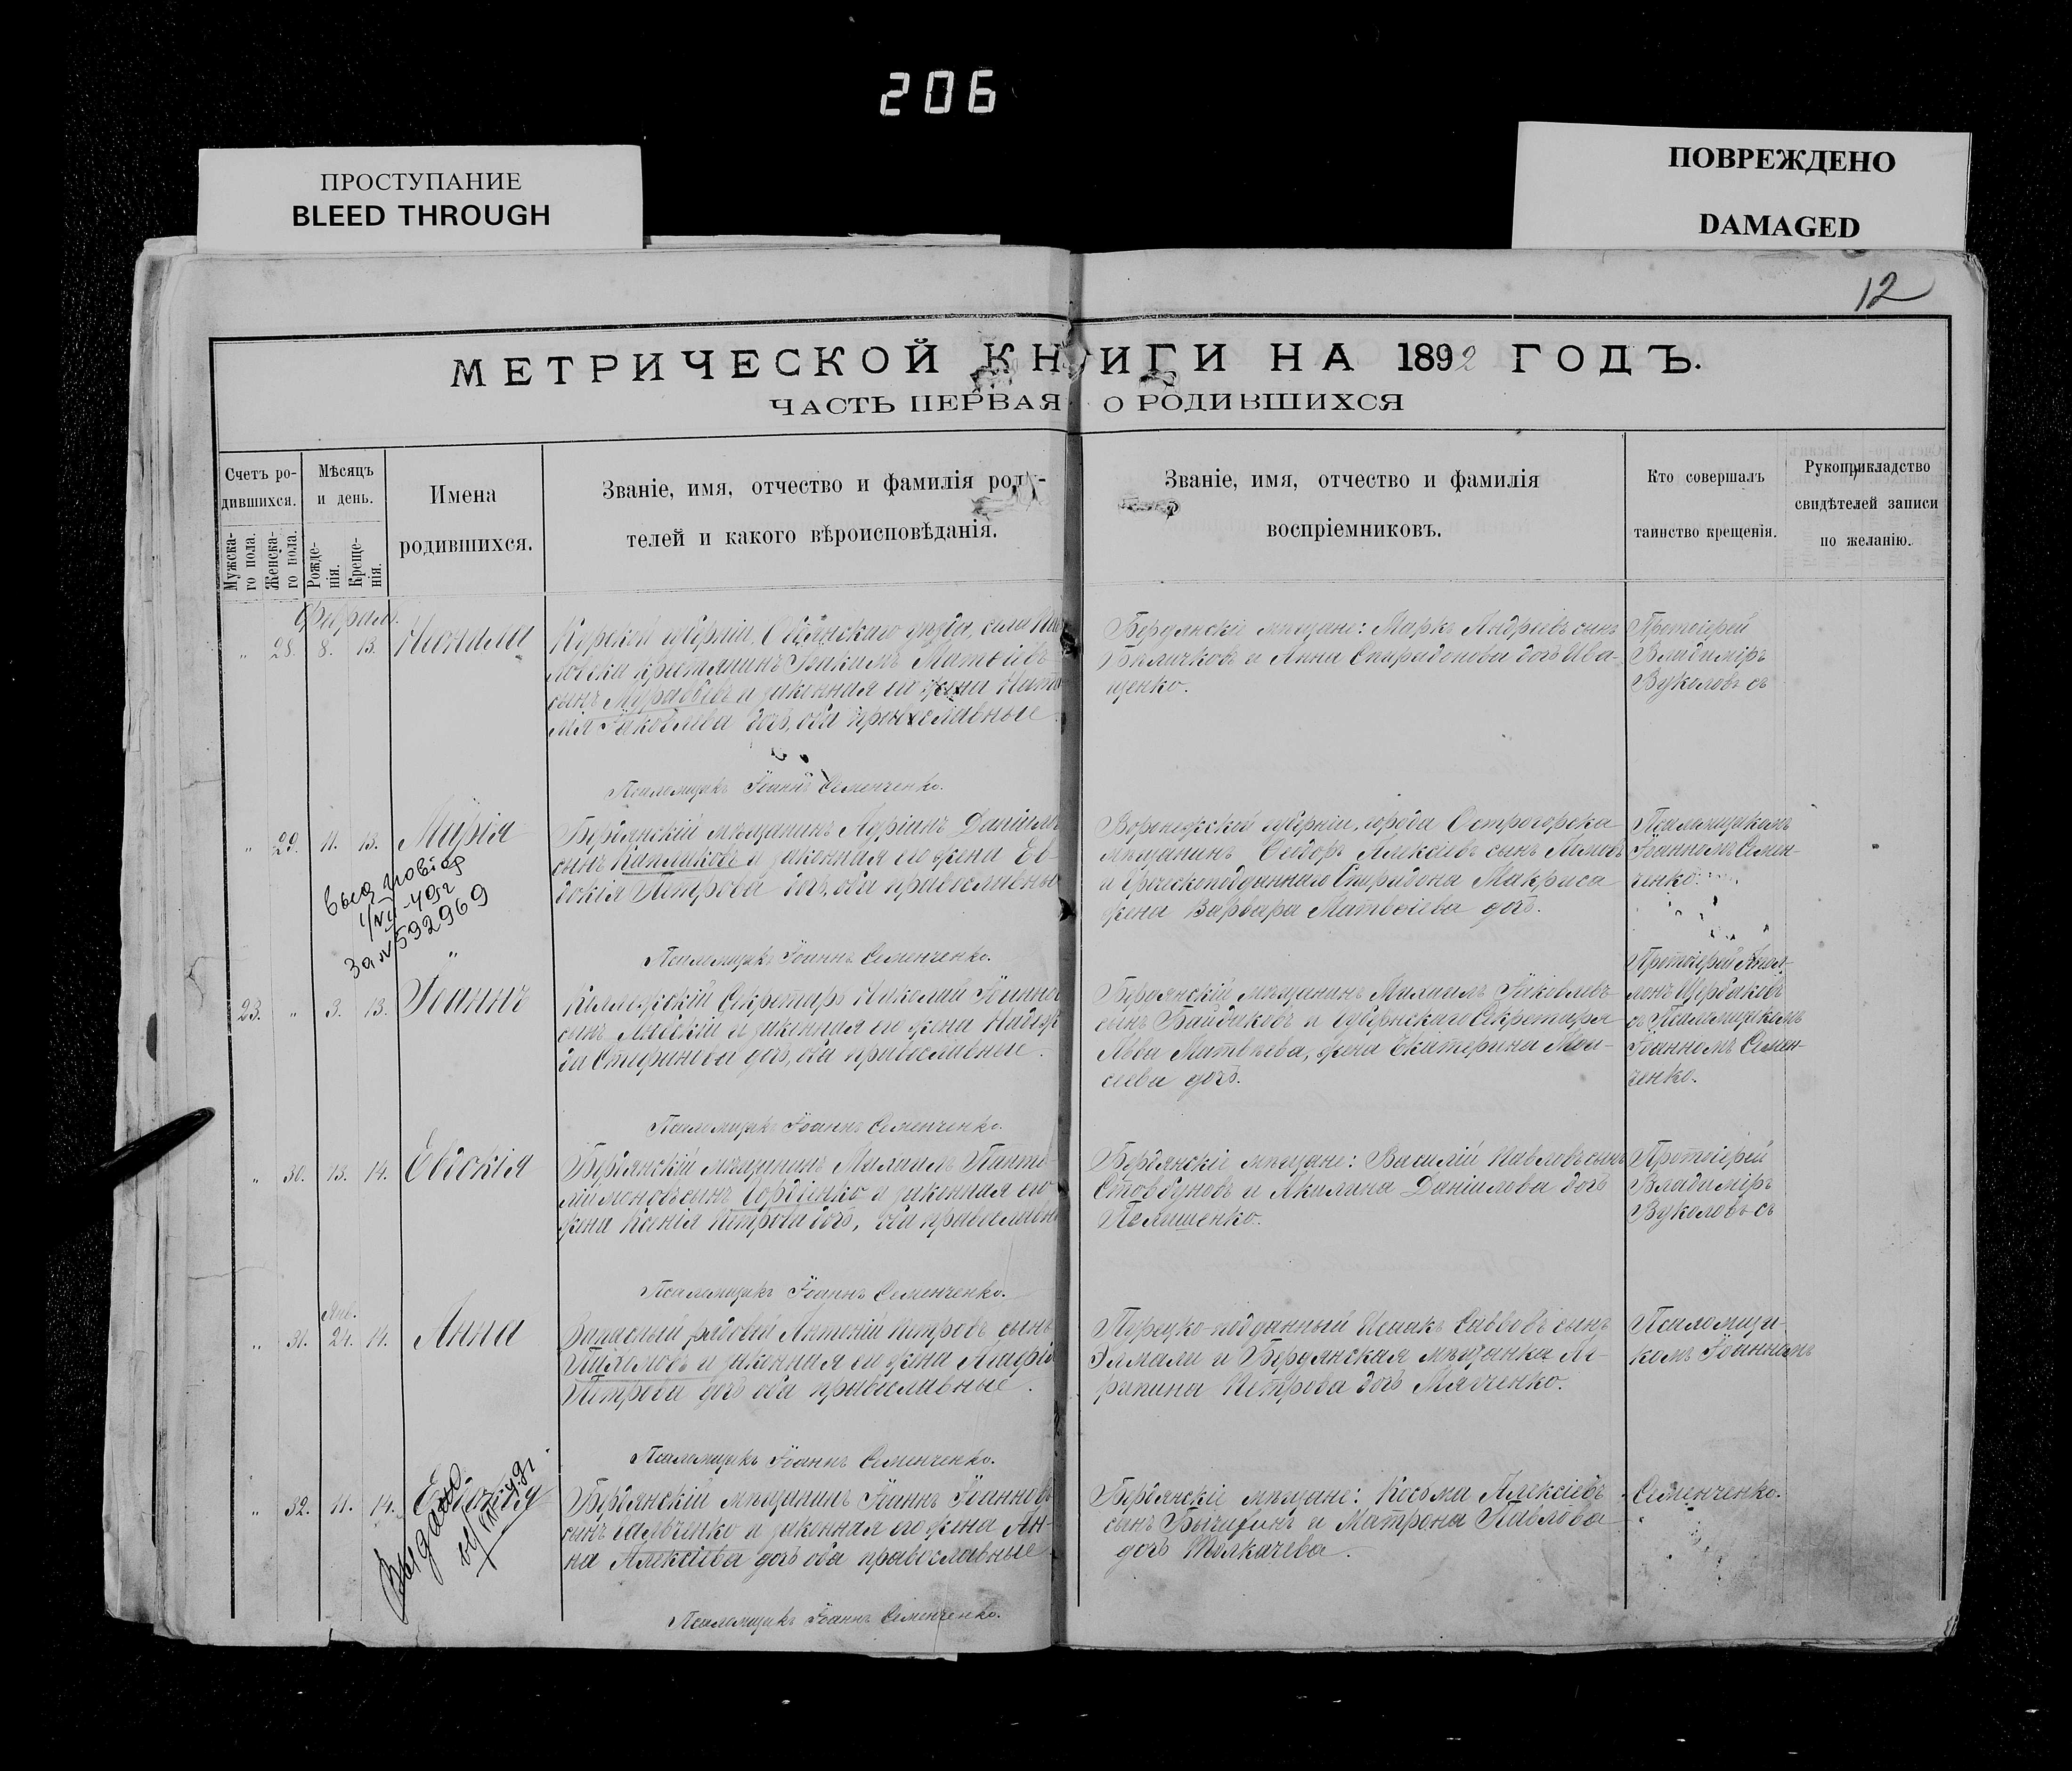 206
ПРОСТУПАНИЕ
BLEED THROUGH
ПОВРЕЖДЕНО
DAMAGED
12
МЕТРИЧЕСКОЙ КНИГИ НА 1892 ГОДЪ.
ЧАСТЬ ПЕРВАЯ О РОДИВШИХСЯ
Счетъ ро-
дившихся.
Мужска-
го пола.
Женска-
го пола.
Мѣсяцъ
и день.
Рожде-
нія.
Креще-
нія.
Имена
родившихся.
Званіе, имя, отчество и фамилія роди-
телей и какого вѣроисповѣданія.
Званіе, имя, отчество и фамилія
воспріемниковъ.
Кто совершалъ
таинство крещенія.
Рукоприкладство
свидѣтелей записи
по желанію.
Февраль.
" 28. 8. 13.
Курской губерніи,
крестьянинъ Іоакимъ Матѳіевъ
сынъ Муравьевъ и законная его жена
Іаковлева дочь, оба православные
Псаломщикъ Іоаннъ Семенченко.
Бердянскіе мѣщане: Маркъ Андреевъ сынъ
и Анна Спиридонова дочь Ива-
щенко.
Протоіерей
Владиміръ
Вуколовъ съ
" 29. 11. 13.
Марія
Бердянскій мѣщанинъ Адріанъ Даніиловъ
сынъ и законная его жена Ев-
докія Петрова дочь, оба православные
Псаломщикъ Іоаннъ Семенченко.
За № 592969
Воронежской губерніи, города Острогорска
мѣщанинъ Ѳеодоръ Алексіевъ сынъ
и Греческоподданнаго Спиридона Макриса
жена Варвара Матвѣева дочь.
Псаломщикомъ
Іоанномъ Семен-
ченко.
23. " 3. 13.
Іоаннъ
Коллежскій Секретарь Николай Іоанновъ
сынъ и законная его жена Надеж-
да дочь, оба православные.
Псаломщикъ Іоаннъ Семенченко.
Бердянскій мѣщанинъ Михаилъ Іаковлевъ
сынъ Байдаковъ и Губернскаго Секретаря
Льва Матвѣева, жена Екатерина Мои-
сеева дочь.
Протоіерей
съ Псаломщикомъ
Іоанномъ Семен-
ченко.
" 30. 13. 14.
Евдокія
Бердянскій мѣщанинъ Михаилъ Панте-
лиймоновъ сынъ Гордіенко и законная его
жена Ксенія Петрова дочь, оба православные
Псаломщикъ Іоаннъ Семенченко.
Бердянскіе мѣщане: Василій Павловъ сынъ
Стовбуновъ и Акилина Даніилова дочь
Протоіерей
Владиміръ
Вуколовъ съ
Янв.
" 31. 24. 14.
Анна
Запасный рядовой Антоній Петровъ сынъ
и законная его жена Агафія
Петрова дочь оба православные.
Псаломщикъ Іоаннъ Семенченко.
Турецко-подданный Исаакъ Саввовъ сынъ
Элмали и Бердянская мѣщанка Аг-
рипина Петрова дочь
Псаломщи-
комъ Іоанномъ
" 32. 11. 14.
Евдокія
Бердянскій мѣщанинъ Іоаннъ Іоанновъ
сынъ и законная его жена Ан-
на Алексіева дочь оба православные
Псаломщикъ Іоаннъ Семенченко.
Бердянскіе мѣщане: Косьма Алексіевъ
сынъ и Матрона Павлова
дочь Толкачева.
Семенченко.